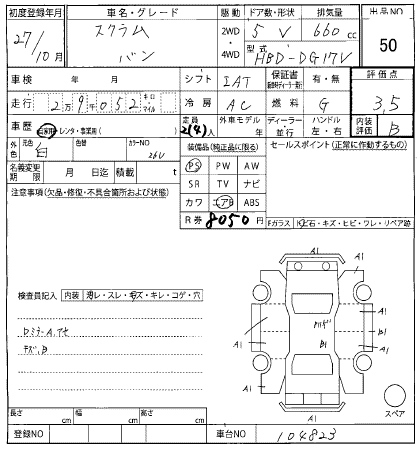 初度登録年月 車名・グレード 駆動 ドア数・形状 排気量 出品NO
27/10月 スクラム バン 2WD・4WD 5 V 660 cc 50
型式 HBD-DG17V
車検 年 月 シフト IAT 保証書 有・無 評価点
走行 2万9千052 キロ・マイル 冷房 AC 燃料 G 3.5
車歴 自家用・レンタ・事業用( ) 定員 2(4)人 外車モデル 年 ディーラー・並行 ハンドル 左・右 内装評価 B
外色 元色 白 色替 カラーNO 26U 装備品(純正品に限る) セールスポイント(正常に作動するもの)
名義変更期限 月 日迄 積載 t PS PW AW
注意事項(欠品・修復・不具合箇所および状態) SR TV ナビ
カワ エアB ABS
R券 8050円 Fガラス 飛石・キズ・ヒビ・ワレ・リペア跡
A1
A1 A1
検査員記入 内装 ヨレ・スレ・キズ・キレ・コゲ・穴
A1 B1 A1
DミラーA,アセ
キズ,B
A1 A1
A1
スペア
長さ cm 幅 cm 高さ cm
登録NO 車台NO 104823